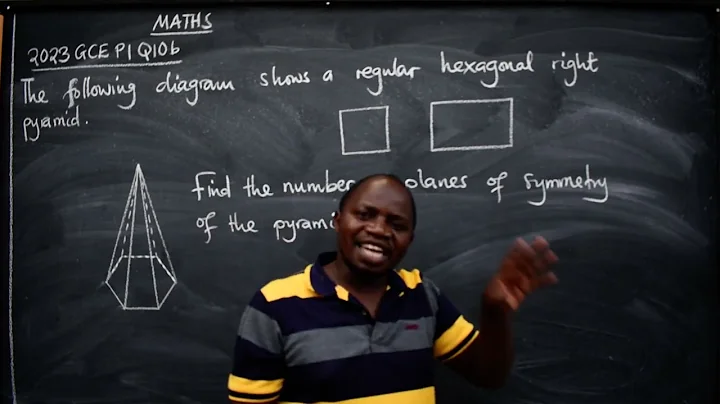 MATHS
2023 GCE P1 Q10b
The following diagram shows a regular hexagonal right
pyramid.
Find the number planes of symmetry
of the